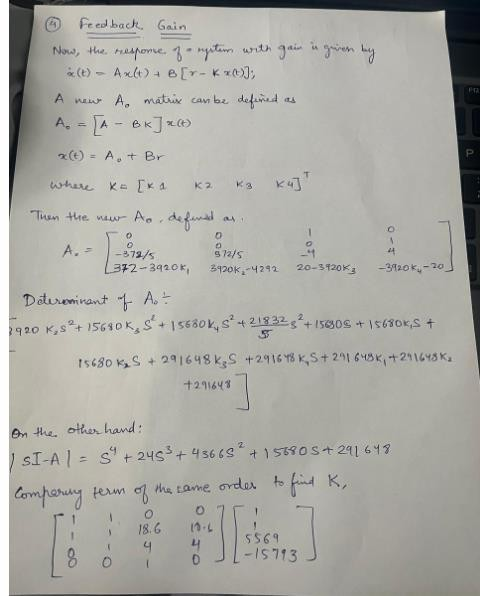 ④ Feedback Gain
Now, the response of a system with gain is given by
ẋ(t) = Ax(t) + B[r - Kx(t)];
A new A₀ matrix can be defined as
A₀ = [A - BK] x(t)
x(t) = A₀ + Br
where K = [K1 K2 K3 K4]ᵀ
Then the new A₀, defined as.
0 0 1 0
0 0 0 1
A₀ = -372/5 372/5 -4 4
372-3920K₁ 3920K₂-4292 20-3920K₃ -3920K₄-20
Determinant of A₀ :-
3920 K₂S² + 15680K₃S² + 15680K₄S² + 21832/5 S² + 15680S + 15680K₁S +
15680K₂S + 291648K₃S + 291648K₄S + 291648K₁ + 291648K₂
+291648
On the other hand:
|SI-A| = S⁴ + 24S³ + 4366S² + 15680S + 291648
Comparing term of the same order to find K,
1 1 0 0 1
1 1 18.6 18.6 1
1 4 4 5569
0 0 1 0 -15793